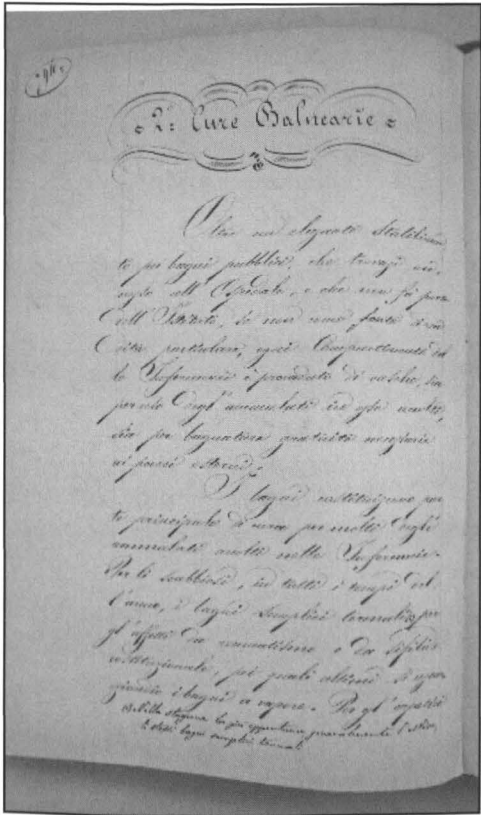 94
2.° Cure Balnearie
Oltre un elegante Stabilimen
to pei bagni pubblici, che trovasi
all'Ospedale, e che non fa parte
dell'Istituto, se non come fonte di
particolare, ogni Compartimento del
le Infermerie è provveduto di vasche, sia
per uso degl'ammalati
sia per bagnature gratuite necessarie
ai poveri esterni.
I bagni costituiscono par
te principale di cura per molti degli
ammalati accolti nelle Infermerie.
Per li scabbiosi, in tutti i tempi del
l'anno, i bagni semplici per
gl'affetti da reumatismo e da sifilide
costituzionale, pei quali
i bagni a vapore. Per gl'
Nella stagione la più opportuna,
bagni semplici termali